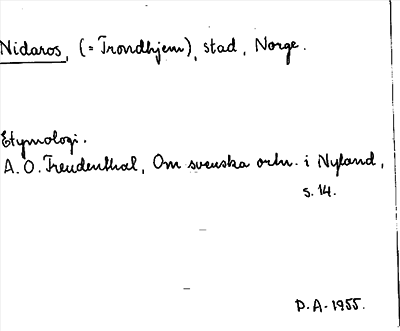 Nidaros, (= Trondhjem), stad, Norge.
Etymologi.
A. O. Freudenthal, Om svenska ortn. i Nyland,
s. 14.
D. A. 1955.